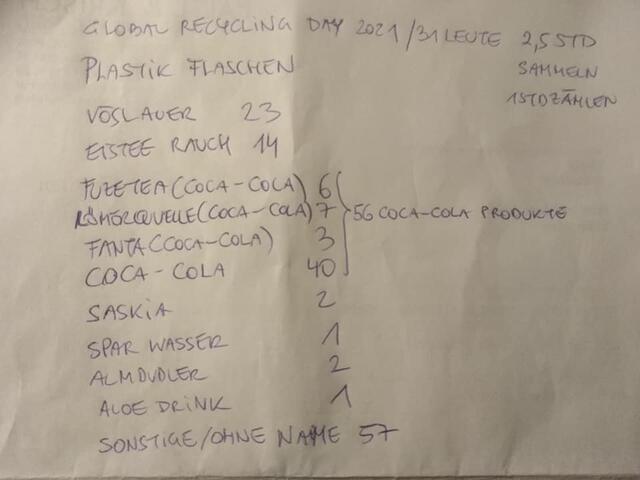 GLOBAL RECYCLING DAY 2021/31 LEUTE 2,5 STD
SAMMELN
PLASTIK FLASCHEN
1 STD ZÄHLEN
VÖSLAUER 23
EISTEE RAUCH 14
FUZETEA (COCA-COLA) 6
RÖMERQUELLE (COCA-COLA) 7
56 COCA-COLA PRODUKTE
FANTA (COCA-COLA) 3
COCA-COLA 40
SASKIA 2
SPAR WASSER 1
ALMDUDLER 2
ALOE DRINK 1
SONSTIGE/OHNE NAME 57